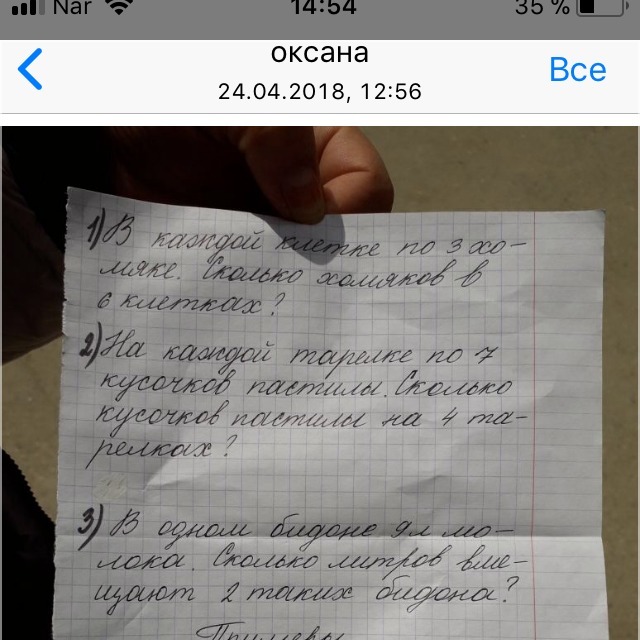 Nar 14:54 35 %
оксана
24.04.2018, 12:56
Все
1) В каждой клетке по 3 хо-
мяке. Сколько хомяков в
6 клетках?
2) На каждой тарелке по 7
кусочков пастилы. Сколько
кусочков пастилы на 4 та-
релках?
3) В одном бидоне 9 л мо-
лока. Сколько литров вме-
щают 2 таких бидона?
Примеры